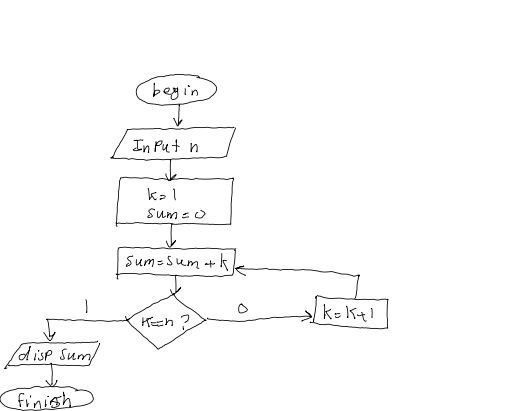 begin
Input n
k=1
sum=0
sum=sum+k
k==n ?
1
0
k=k+1
disp sum
finish